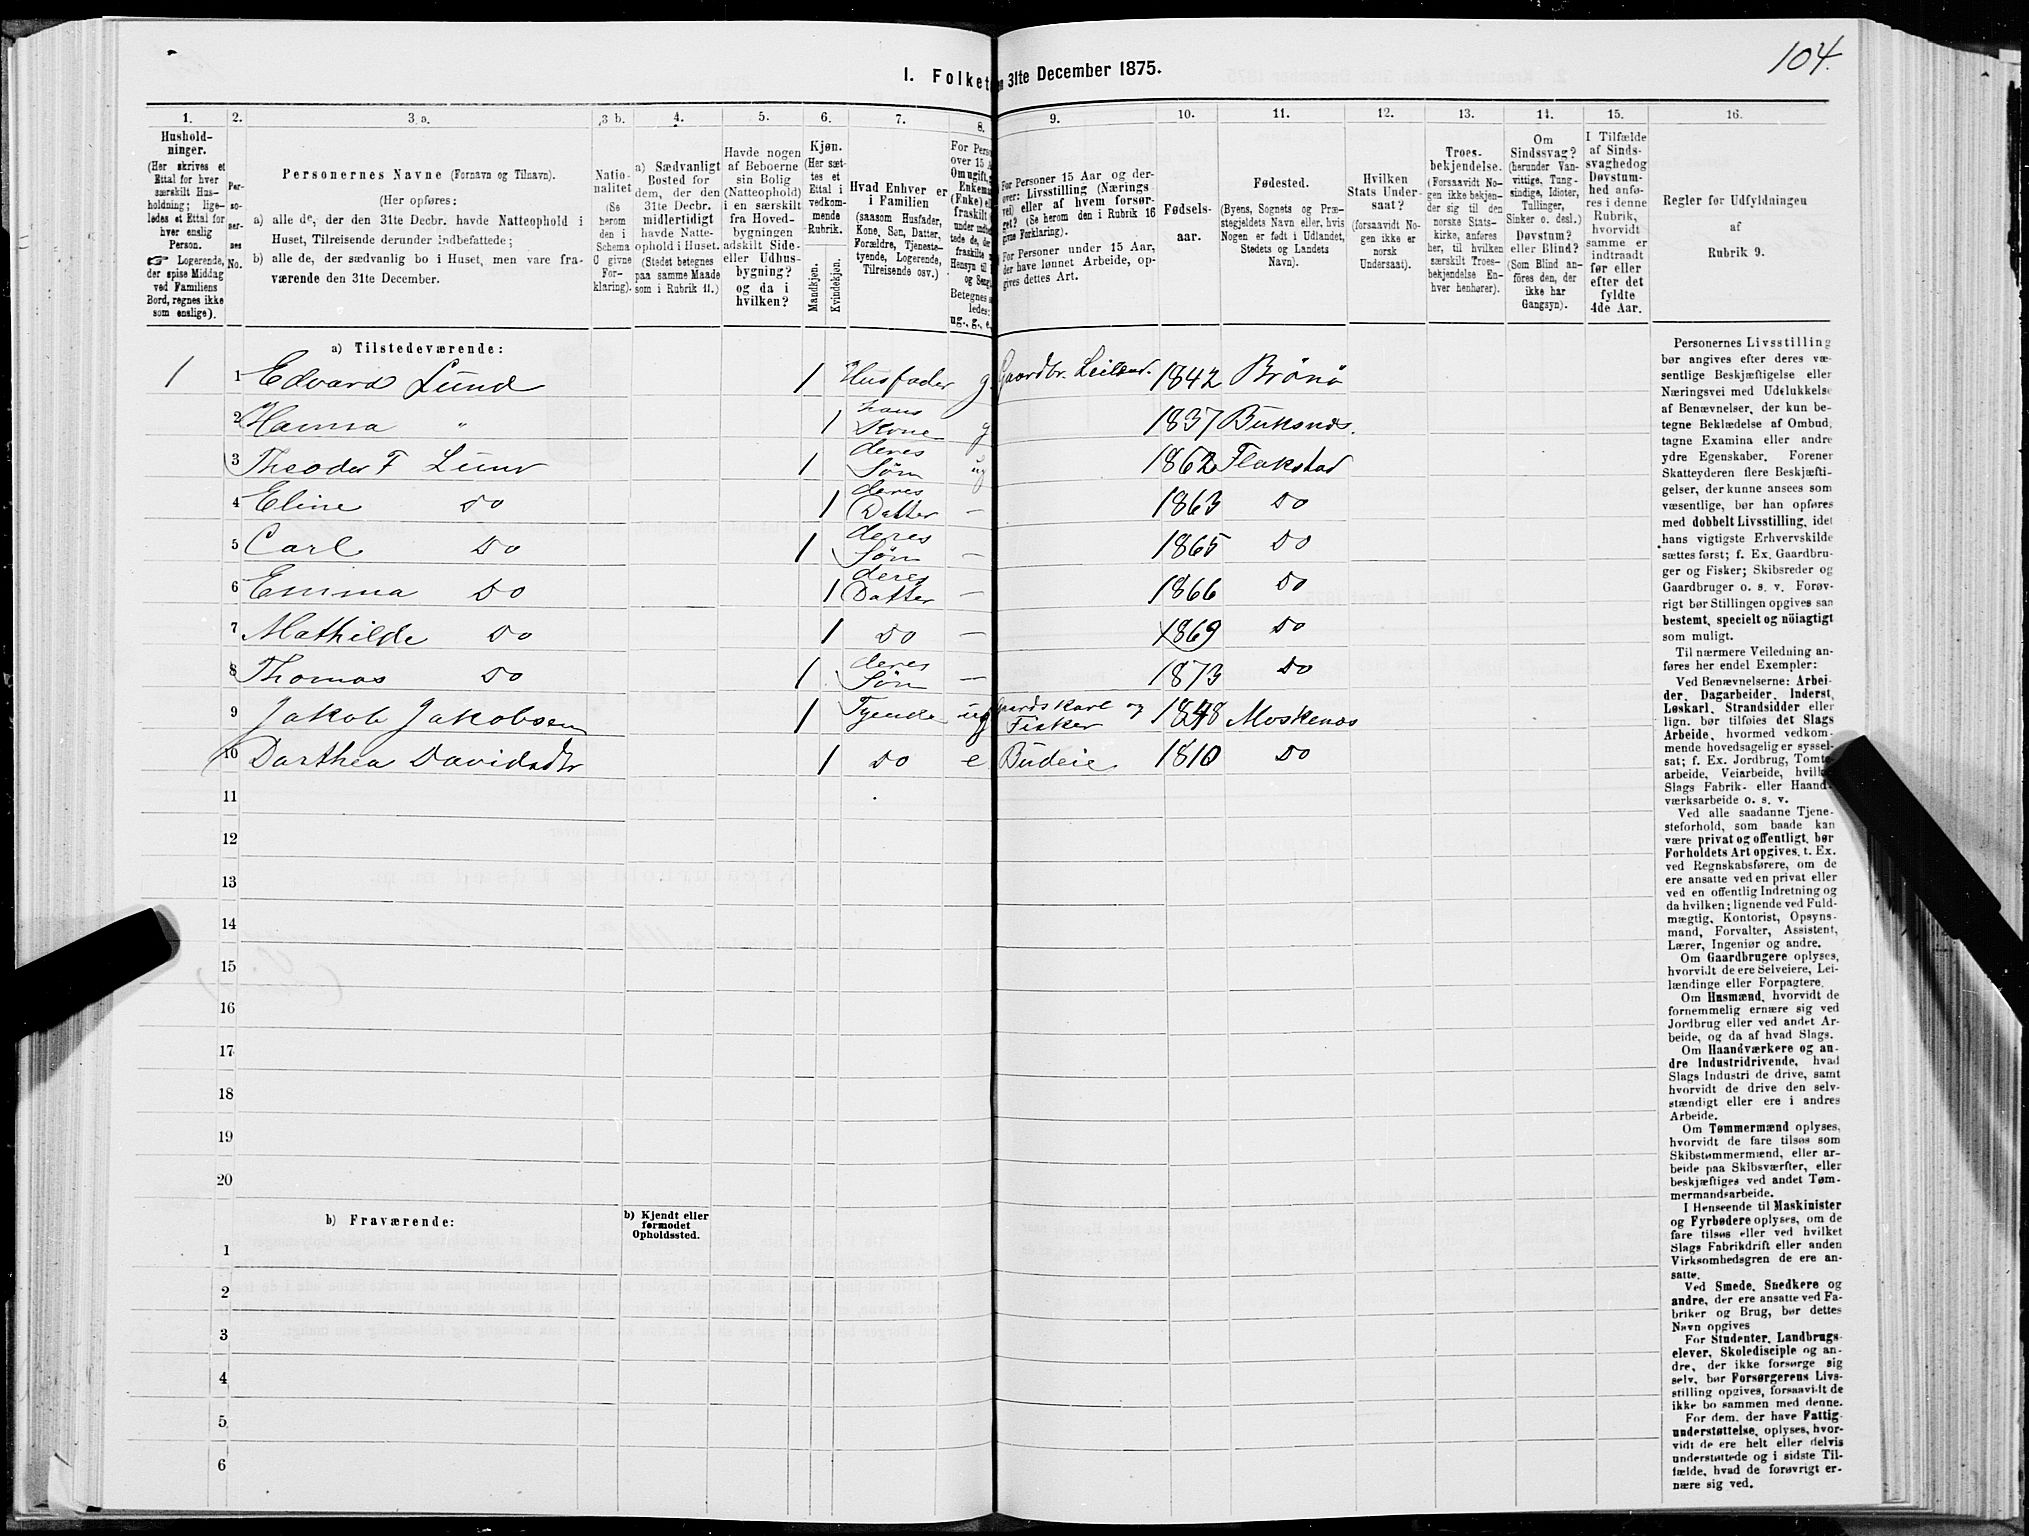 104.
I. Folket
en 31te December 1875.
1.
2.
3 a.
3 b.
4.
5.
6.
7.
8.
9.
10.
11.
12.
13.
14.
15.
16.
Hushold-
ninger.
(Her skrives et
Ettal for hver
særskilt Hus-
holdning; lige-
ledes et Ettal for
hver enslig
Person.
☞ Logerende,
der spise Middag
ved Familiens
Bord, regnes ikke
som enslige).
Per-
so-
ner-
nes
No.
Personernes Navne (Fornavn og Tilnavn).
(Her opføres:
a) alle de, der den 31te Decbr. havde Natteophold i
Huset, Tilreisende derunder indbefattede;
b) alle de, der sædvanlig bo i Huset, men vare fra-
værende den 31te December.
Natio-
nalitet
(Se
herom
den i
Schema
C givne
For-
klaring).
a) Sædvanligt
Bosted for
dem, der den
31te Decbr.
midlertidigt
havde Natte-
ophold i Huset.
(Stedet betegnes
paa samme Maade
som i Rubrik 11.)
Havde nogen
af Beboerne
sin Bolig
(Natteophold)
i en særskilt
fra Hoved-
bygningen
adskilt Side-
eller Udhus-
bygning?
og da i
hvilken?
Kjøn.
(Her sæt-
tes et
Ettal i
vedkom-
mende
Rubrik.
Mandkjøn.
Kvindekjøn.
Hvad Enhver er
i Familien
(saasom Husfader,
Kone, Søn, Datter,
Forældre, Tjeneste-
tyende, Logerende,
Tilreisende osv.)
For Pers
over 15 A
Om ugift,
Enkema
(Enke) el
fraskilt
under indbe
tede de, de
fraskilte
Hensyn til
og Seng
Betegnes s
ledes:
ug., g., e.
For Personer 15 Aar og der-
over: Livsstilling (Nærings
vei) eller af hvem forsør-
get? (Se herom den i Rubrik 16
givne Forklaring).
For Personer under 15 Aar,
der have lønnet Arbeide, op-
gives dettes Art.
Fødsels-
aar.
Fødested.
(Byens, Sognets og Præ-
stegjeldets Navn eller, hvis
Nogen er født i Udlandet,
Stedets og Landets
Navn).
Hvilken
Stats Under-
saat?
(forsaavidt No-
gen ikke er
norsk
Undersaat).
Troes-
bekjendelse.
(Forsaavidt No-
gen ikke bekjen-
der sig til den
norske Stats-
kirke, anføres
her, til hvilken
særskilt Troes-
bekjendelse En-
hver henhører).
Om
Sindssvag?
(herunder Van-
vittige, Tung-
sindige, Idioter,
Tullinger,
Sinker o. desl.)
Døvstum?
eller Blind?
(Som Blind an-
føres den, der
ikke har
Gangsyn).
I Tilfælde
af Sinds-
svaghed og
Døvstum-
hed anfø-
res i denne
Rubrik,
hvorvidt
samme er
indtraadt
før eller
efter det
fyldte
4de Aar.
Regler for Udfyldningen
af
Rubrik 9.
a) Tilstedeværende:
1 1 Edvard Lund 1 Husfader g. Gaardbr. Leilænd. 1842 Brönö
2 Hanna " 1 hans Kone g 1837 Buksnæs.
3 Theodor F Lund 1 deres Søn ug 1862 Flakstad
4 Eline Do 1 deres Datter — 1863 Do
5 Carl Do 1 deres Søn — 1865 Do
6 Emma Do 1 deres Datter — 1866 Do
7 Mathilde Do 1 Do — 1869 Do
8 Thomas Do 1 deres Søn — 1873 Do
9 Jakob Jakobsen 1 Tyende ug gaardskarl og Fisker 1848 Moskenæs
10 Dorthea Davidsdtr 1 Do e Budeie 1810 Do
11
12
13
14
15
16
17
18
19
20
b) Fraværende:
b) Kjendt eller
formodet
Opholdssted.
1
2
3
4
5
6
Personernes Livsstilling
bør angives efter deres væ-
sentlige Beskjæftigelse eller
Næringsvei med Udelukkelse
af Benævnelser, der kun be-
tegne Beklædelse af Ombud,
tagne Examina eller andre
ydre Egenskaber. Forener
Skatteyderen flere Beskjæfti-
gelser, der kunne ansees som
væsentlige, bør han opføres
med dobbelt Livsstilling, idet
hans vigtigste Erhvervskilde
sættes først; f. Ex. Gaardbru-
ger og Fisker; Skibsreder og
Gaardbruger o. s. v. Forøv-
rigt bør Stillingen opgives saa
bestemt, specielt og nöiagtigt
som muligt.
Til nærmere Veiledning an-
føres her endel Exempler:
Ved Benævnelserne: Arbei-
der, Dagarbeider, Inderst,
Løskarl, Strandsidder eller
lign. bør tilføies det Slags
Arbeide, hvormed vedkom-
mende hovedsagelig er syssel-
sat; f. Ex. Jordbrug, Tomte-
arbeide, Veiarbeide, hvilket
Slags Fabrik- eller Haand-
værksarbeide o. s. v.
Ved alle saadanne Tjene-
steforhold, som baade kan
være privat og offentligt, bør
Forholdets Art opgives, t. Ex.
ved Regnskabsførere, om de
ere ansatte ved en privat eller
ved en offentlig Indretning og
da hvilken; lignende ved Fuld-
mægtig, Kontorist, Opsyns-
mand, Forvalter, Assistent,
Lærer, Ingeniør og andre.
Om Gaardbrugere oplyses,
hvorvidt de ere Selveiere, Lei-
lændinge eller Forpagtere.
Om Husmænd, hvorvidt de
fornemmelig ernære sig ved
Jordbrug eller ved andet Ar-
beide, og da af hvad Slags.
Om Haandværkere og an-
dre Industridrivende, hvad
Slags Industri de drive, samt
hvorvidt de drive den selv-
stændigt eller ere i andres
Arbeide.
Om Tømmermænd oplyses,
hvorvidt de fare tilsøs som
Skibstømmermænd, eller ar-
beide paa Skibsværfter, eller
beskjæftiges ved andet Tøm-
mermandsarbeide.
I Henseende til Maskinister
og Fyrbødere oplyses, om de
fare tilsøs eller ved hvilket
Slags Fabrikdrift eller anden
Virksomhedsgren de ere an-
satte.
Ved Smede, Snedkere og
andre, der ere ansatte ved Fa-
briker og Brug, bør dettes
Navn opgives
For Studenter, Landbrugs-
elever, Skoledisciple og an-
dre, der ikke forsørge sig
selv, bør Forsørgerens Livs-
stilling opgives, forsaavidt de
ikke bo sammen med denne.
For dem, der have Fattig-
understøttelse, oplyses, hvor-
vidt de ere helt eller delvis
understøttede og i sidste Til-
fælde, hvad de forøvrigt er-
nære sig ved.